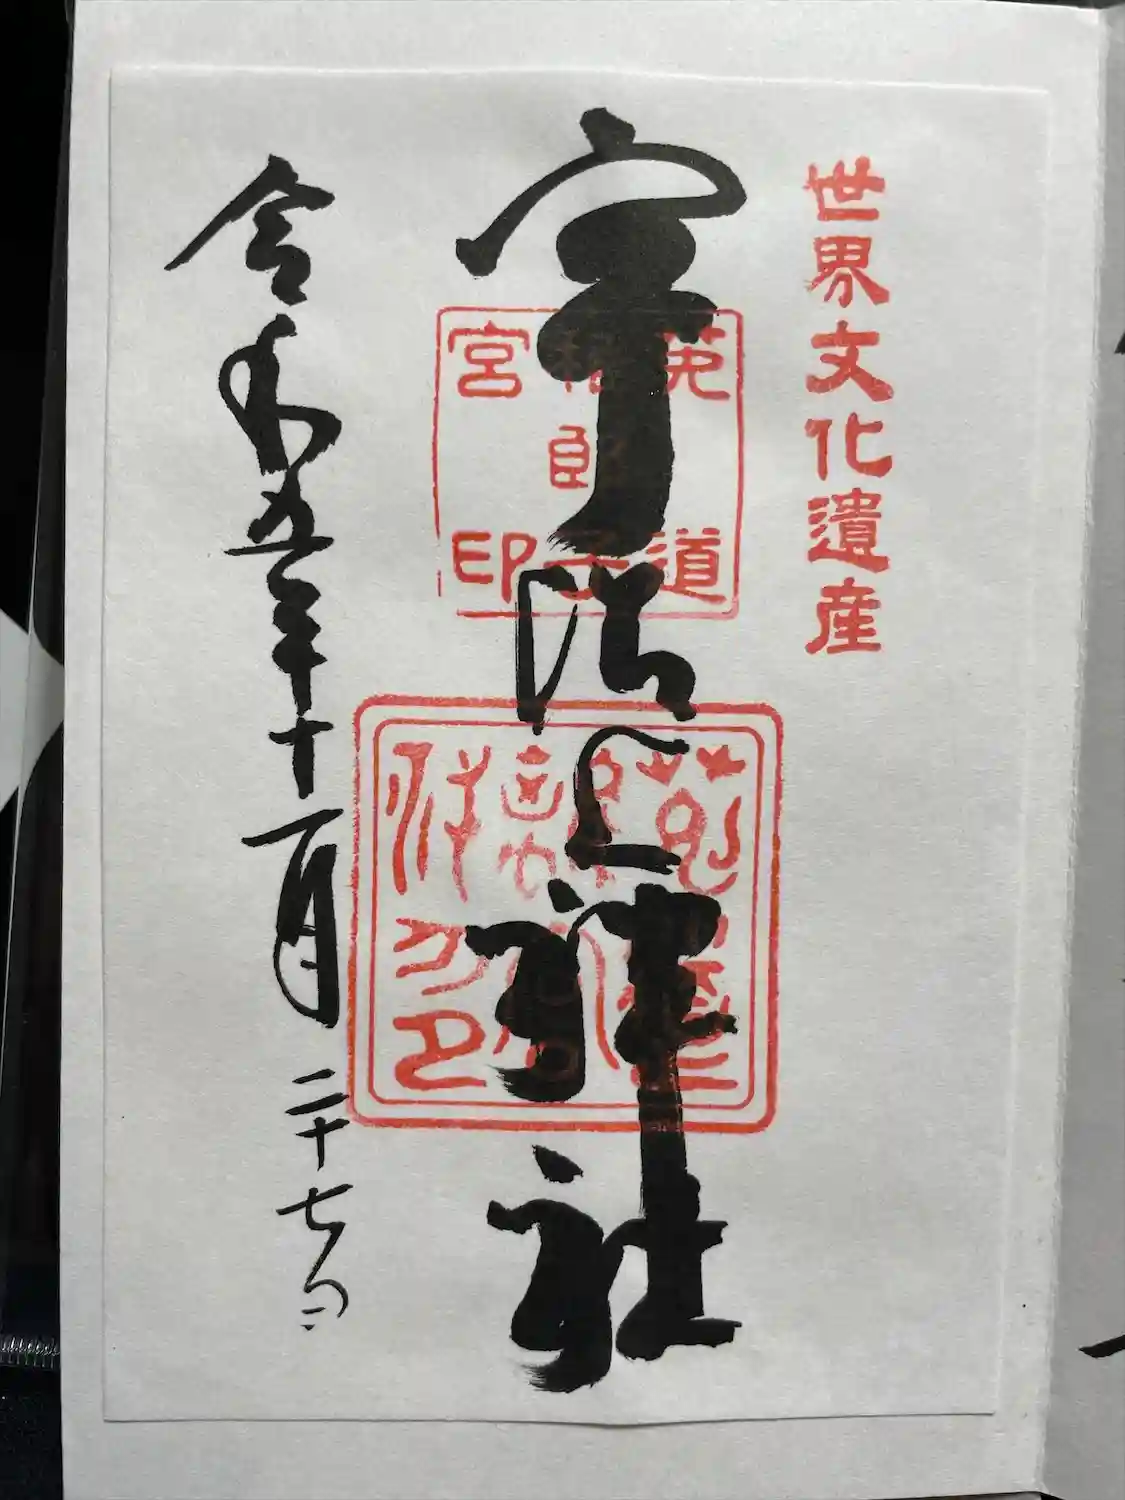 世界文化遺産
宇治上神社
菟道稚郎子宮印
令和五年十一月二十七日